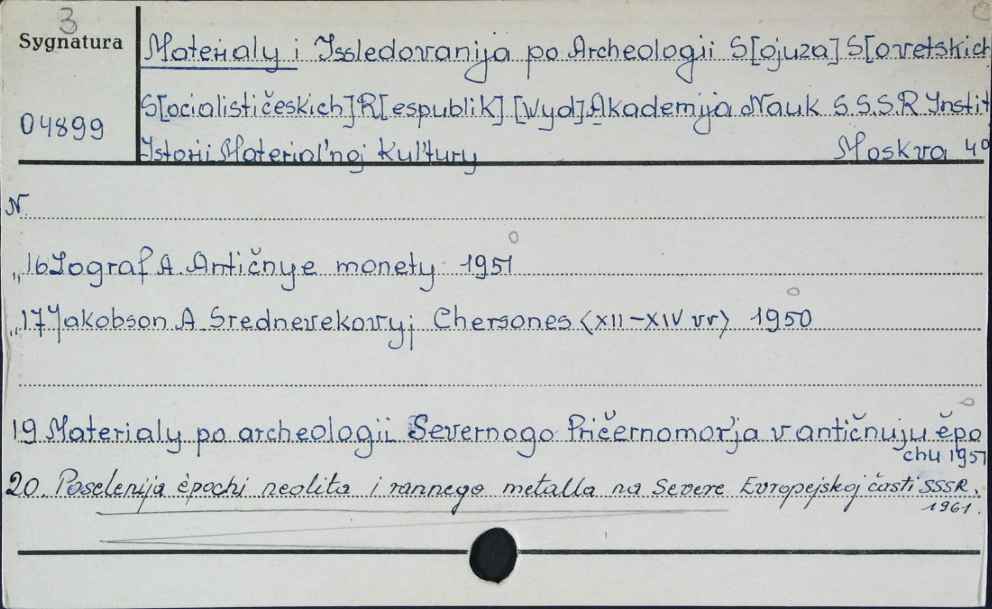 3
Sygnatura
04899
Materialy i Issledovanija po Archeologii S[ojuza] S[ovetskich
S[ocialističeskich] R[espublik] [Wyd] Akademija Nauk S.S.S.R Instit
Istorii Material'noj Kul'tury Moskva 4°
N.
„16 Zograf A. Antičnye monety 1951
„17 Jakobson A. Srednevekovyj Chersones <XII-XIV vv> 1950
19 Materialy po archeologii Severnogo Pričernomor'ja v antičnuju ėpo
chu 1951
20. Poselenija ėpochi neolita i rannego metalla na Severe Evropejskoj časti SSSR.
1961.